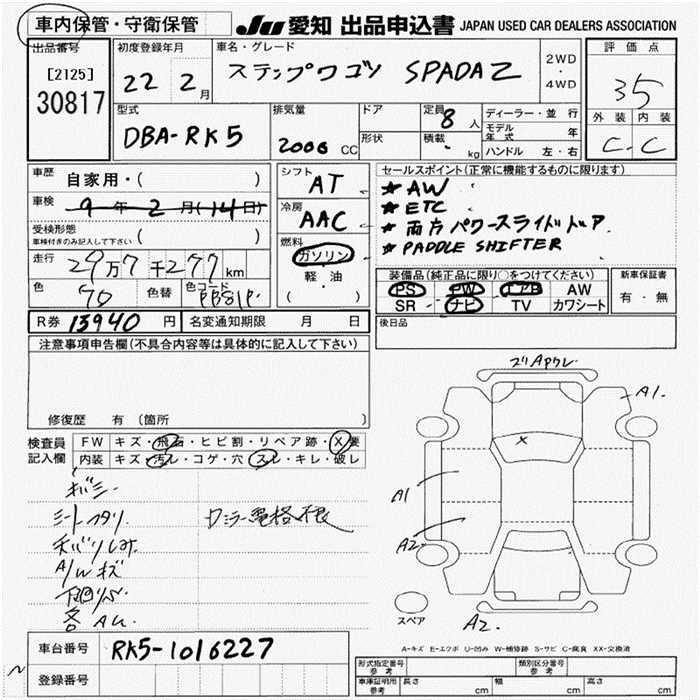 車内保管・守衛保管
JU 愛知 出品申込書 JAPAN USED CAR DEALERS ASSOCIATION
出品番号
[2125]
30817
初度登録年月
22 2月
車名・グレード
ステップワゴン SPADA Z
2WD
・
4WD
評価点
35
外装 内装
C C
型式
DBA-RK5
排気量
2000 CC
ドア
形状
定員 8人
積載 kg
ディーラー・並行
モデル年式 年
ハンドル 左・右
車歴 自家用・( )
車検 9年2月(14日)
受検形態
車検付きのみ記入して下さい ( )
走行 29万7千277km
色 70 色替 色コード
シフト AT
冷房 AAC
燃料
ガソリン
軽油
( )
セールスポイント(正常に機能するものに限ります)
★ AW
★ ETC
★ 両方パワースライドドア
★ PADDLE SHIFTER
装備品(純正品に限り○をつけてください)
PS PW エアB AW
SR ナビ TV カワシート
新車保証書
有・無
後日品
R券 13940円 名変通知期限 月 日
注意事項申告欄(不具合内容等は具体的に記入して下さい)
修復歴 有 (箇所
検査員記入欄
FW キズ・飛石・ヒビ割・リペア跡・X要
内装 キズ・汚レ・コゲ・穴・スレ・キレ・破レ
シートヘタリ
A/Wキズ
A1
A1
A2
A2
X
スペア
A-キズ E-エクボ U-凹み W-補修跡 S-サビ C-腐食 XX-交換済
車台番号 RK5-1016227
登録番号
型式指定番号 参考
類別区分番号 参考
車庫証明用 参考 長さ cm 幅 cm 高さ cm